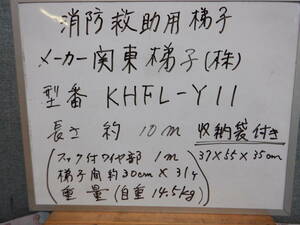 消防救助用梯子
メーカー関東梯子(株)
型番 KHFL-Y11
長さ 約 10m 収納袋付き
(フック付ワイヤ部 1m) 37×55×35cm
梯子間約30cm×31ヶ
重量(自重14.5kg)